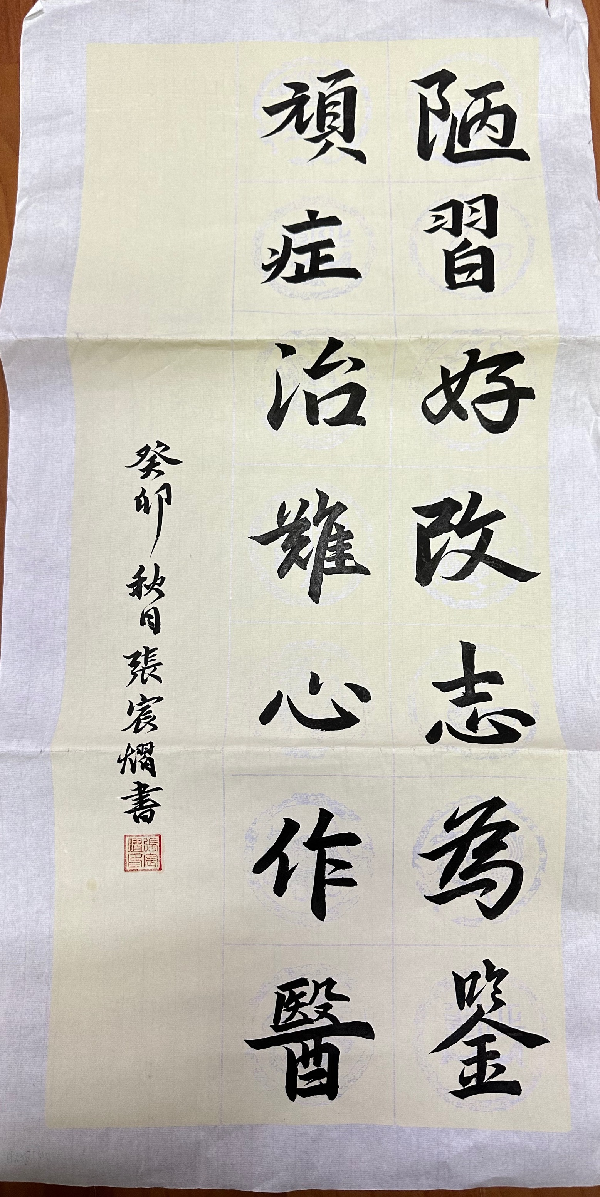 陋習好改志為鉴
頑症治難心作醫
癸卯秋日張宸熠書